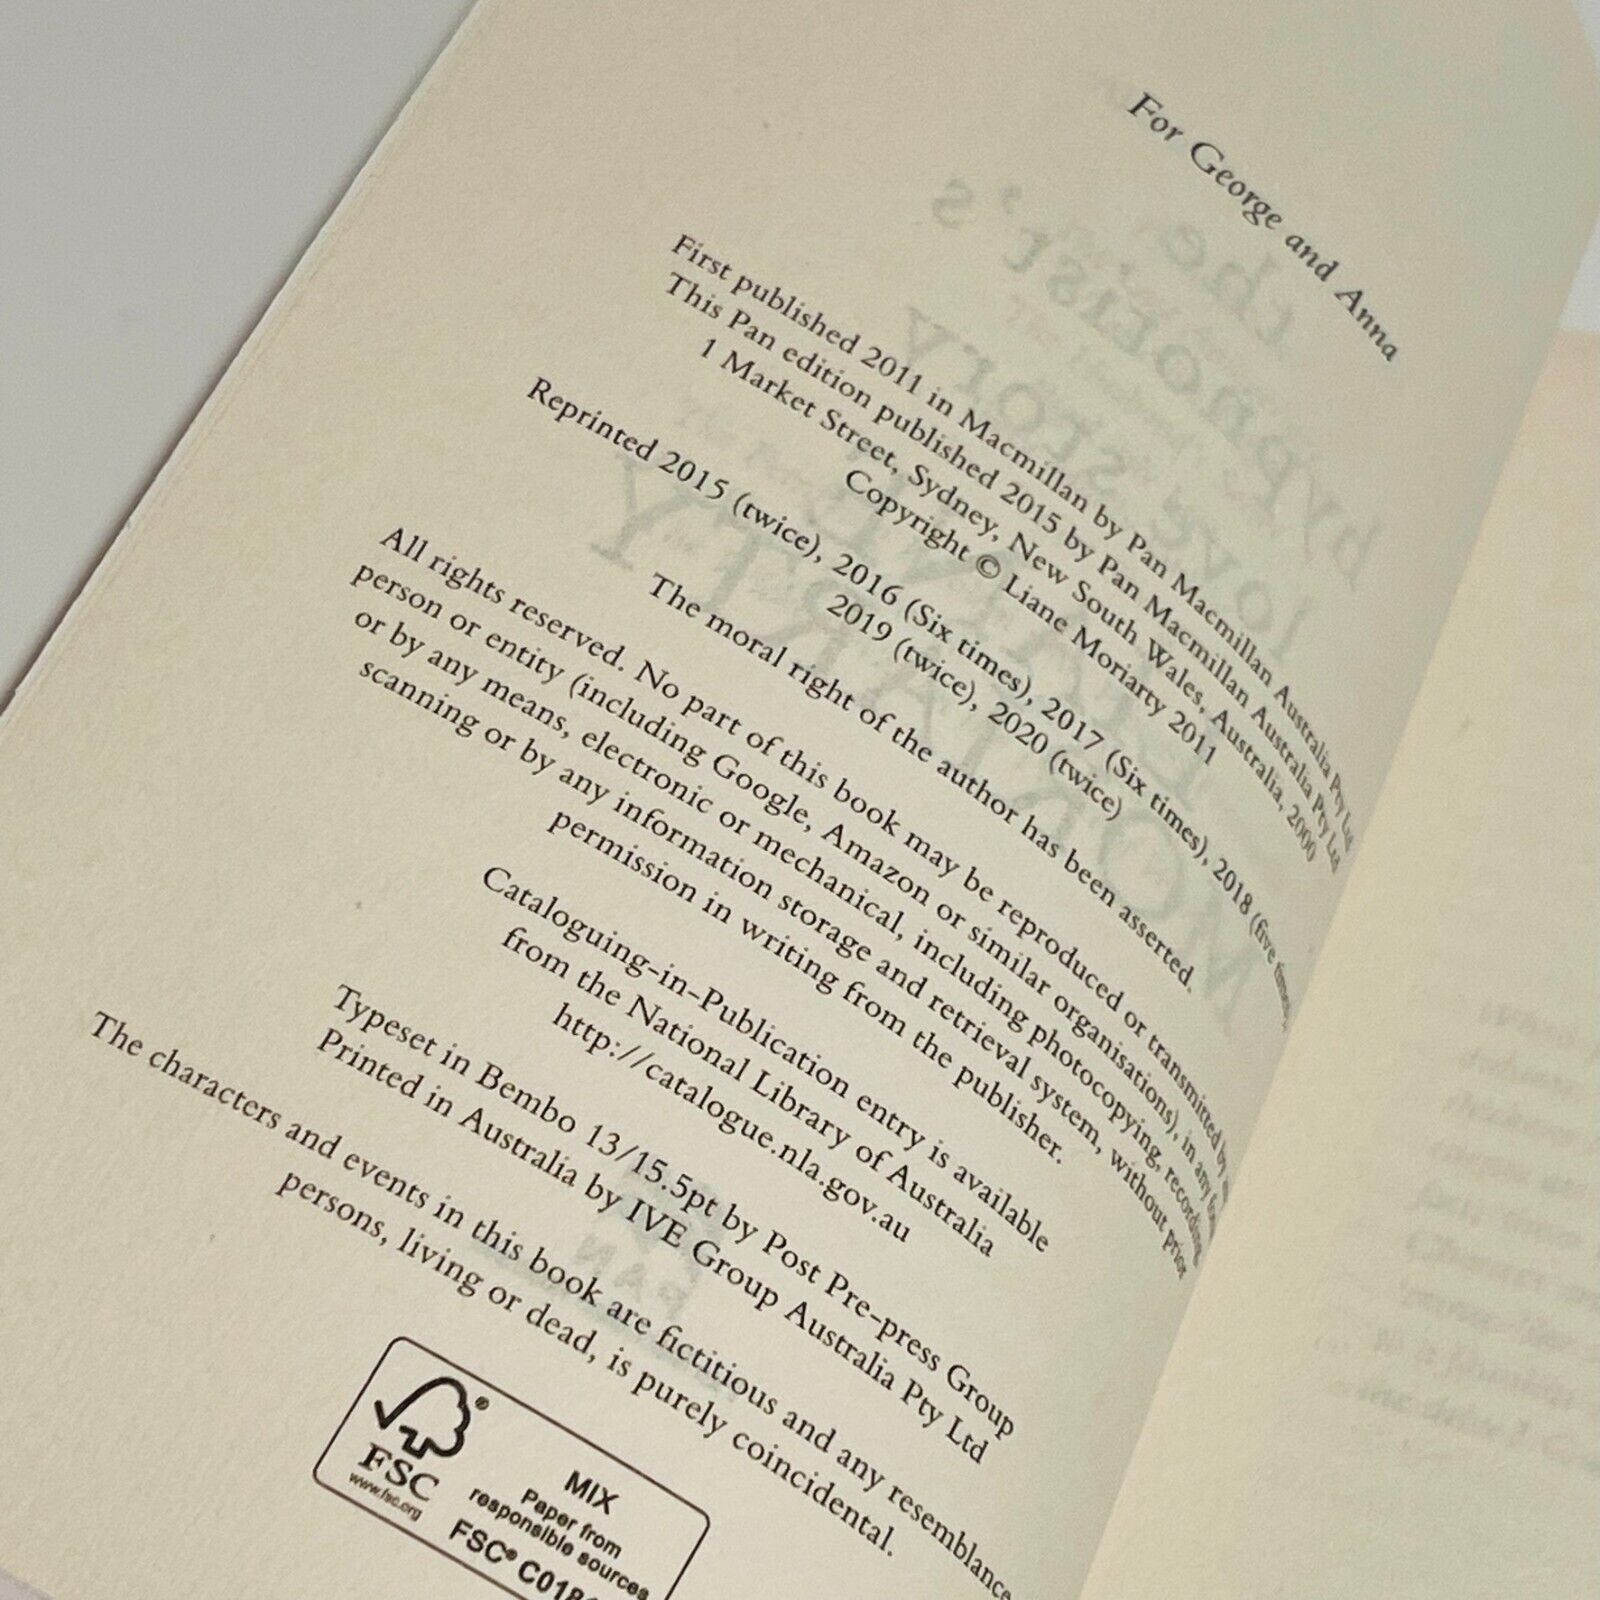 For George and Anna
First published 2011 in Macmillan by Pan Macmillan Australia Pty Ltd
This Pan edition published 2015 by Pan Macmillan Australia Pty Ltd
1 Market Street, Sydney, New South Wales, Australia, 2000
Copyright © Liane Moriarty 2011
Reprinted 2015 (twice), 2016 (Six times), 2017 (Six times), 2018 (five times),
2019 (twice), 2020 (twice)
The moral right of the author has been asserted.
All rights reserved. No part of this book may be reproduced or transmitted by
person or entity (including Google, Amazon or similar organisations), in any
or by any means, electronic or mechanical, including photocopying, recording,
scanning or by any information storage and retrieval system, without prior
permission in writing from the publisher.
Cataloguing-in-Publication entry is available
from the National Library of Australia
http://catalogue.nla.gov.au
Typeset in Bembo 13/15.5pt by Post Pre-press Group
Printed in Australia by IVE Group Australia Pty Ltd
The characters and events in this book are fictitious and any resemblance
persons, living or dead, is purely coincidental.
FSC®
www.fsc.org
MIX
Paper from
responsible sources
FSC®